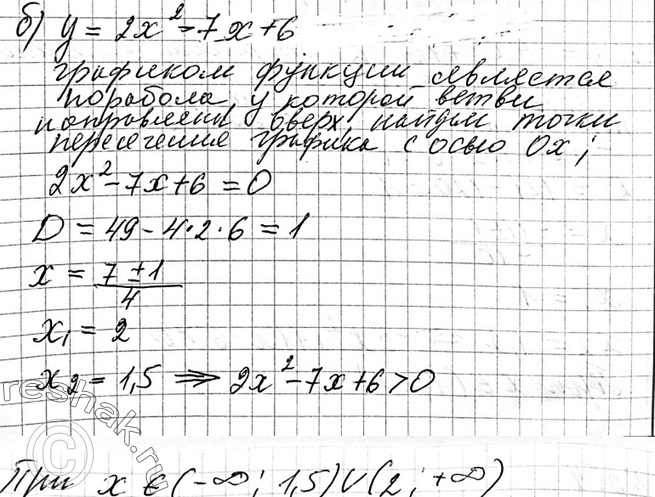 б) y = 2x² - 7x + 6
графиком функции является
порабола, у которой ветви
направлены вверх, найдём точки
пересечения графика с осью Ox;
2x² - 7x + 6 = 0
D = 49 - 4·2·6 = 1
x = (7 ± 1)/4
x₁ = 2
x₂ = 1,5 ⇒ 2x² - 7x + 6 > 0
При x ∈ (-∞; 1,5) ∪ (2; +∞)
reshak.ru
©